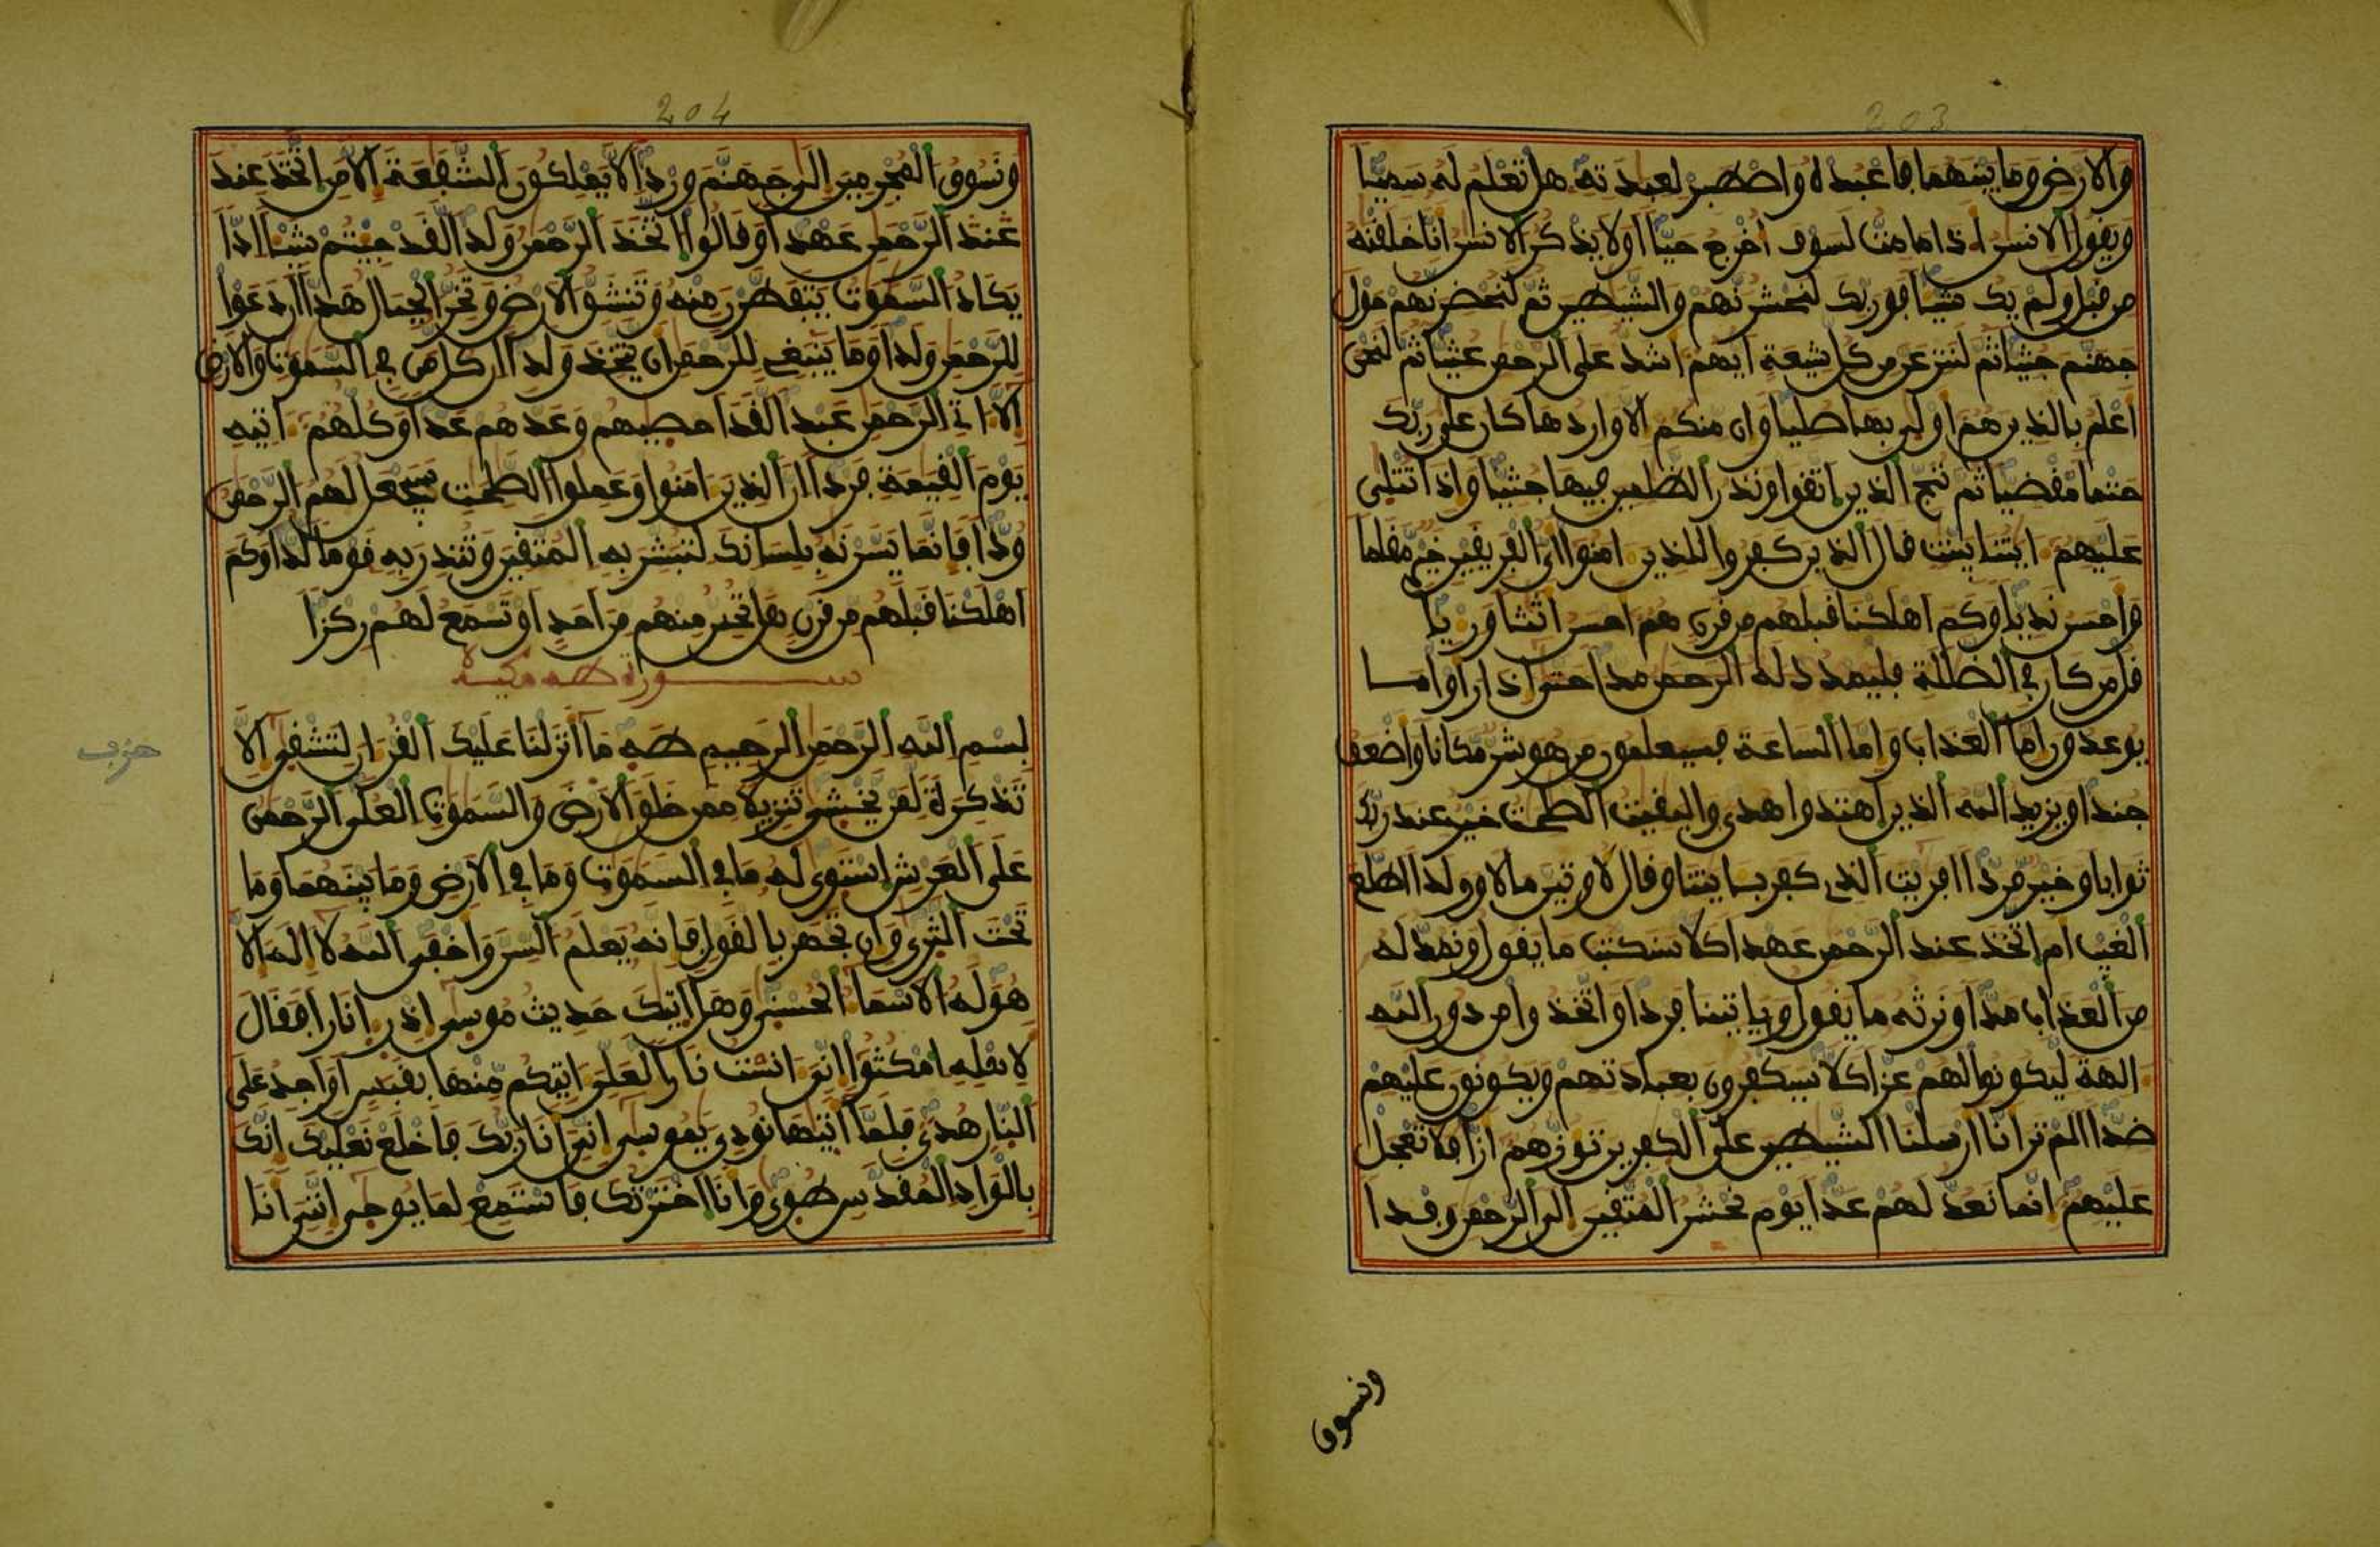 203
والارض وما بينهما فاعبده واصطبر لعبدته هل تعلم له سميا
ويقول الانسن اذا ما مت لسوف اخرج حيا اولا يذكر الانسن انا خلقنه
من قبل ولم يك شيا فوربك لنحشرنهم والشيطين ثم لنحضرنهم حول
جهنم جثيا ثم لننزعن من كل شيعة ايهم اشد على الرحمن عتيا ثم لنحن
اعلم بالذين هم اولى بها صليا وان منكم الا واردها كان على ربك
حتما مقضيا ثم ننج الذين اتقوا ونذر الظلمين فيها جثيا واذا تتلى
عليهم ايتنا بينت قال الذين كفروا للذين امنوا اي الفريقين خير مقاما
واحسن نديا وكم اهلكنا قبلهم من قرن هم احسن اثثا وريا
قل من كان في الضللة فليمدد له الرحمن مدا حتى اذا راوا ما
يوعدون اما العذاب واما الساعة فسيعلمون من هو شر مكانا واضعف
جندا ويزيد الله الذين اهتدوا هدى والبقيت الصلحت خير عند ربك
ثوابا وخير مردا افريت الذي كفر بايتنا وقال لاوتين مالا وولدا اطلع
الغيب ام اتخذ عند الرحمن عهدا كلا سنكتب ما يقول ونمد له
من العذاب مدا ونرثه ما يقول وياتينا فردا واتخذوا من دون الله
الهة ليكونوا لهم عزا كلا سيكفرون بعبادتهم ويكونون عليهم
ضدا الم تر انا ارسلنا الشيطين على الكفرين توزهم ازا فلا تعجل
عليهم انما نعد لهم عدا يوم نحشر المتقين الى الرحمن وفدا
ونسوق
204
ونسوق المجرمين الى جهنم وردا لا يملكون الشفعة الا من اتخذ عند
عند الرحمن عهدا وقالوا اتخذ الرحمن ولدا لقد جيتم شيا ادا
يكاد السموت يتفطرن منه وتنشق الارض وتخر الجبال هدا ان دعوا
للرحمن ولدا وما ينبغي للرحمن ان يتخذ ولدا ان كل من في السموت والارض
الا اتي الرحمن عبدا لقد احصيهم وعدهم عدا وكلهم اتيه
يوم القيمة فردا ان الذين امنوا وعملوا الصلحت سيجعل لهم الرحمن
ودا فانما يسرنه بلسانك لتبشر به المتقين وتنذر به قوما لدا وكم
اهلكنا قبلهم من قرن هل تحس منهم من احد او تسمع لهم ركزا
سورة طه مكية
بسم الله الرحمن الرحيم طه ما انزلنا عليك القران لتشقى الا
حزب
تذكرة لمن يخشى تنزيلا ممن خلق الارض والسموت العلى الرحمن
على العرش استوى له ما في السموت وما في الارض وما بينهما وما
تحت الثرى وان تجهر بالقول فانه يعلم السر واخفى الله لا اله الا
هو له الاسما الحسنى وهل اتيك حديث موسى اذ را نارا فقال
لاهله امكثوا اني انست نارا لعلي اتيكم منها بقبس او اجد على
النار هدى فلما اتيها نودي يموسى اني انا ربك فاخلع نعليك انك
بالواد المقدس طوى وانا اخترتك فاستمع لما يوحى انني انا